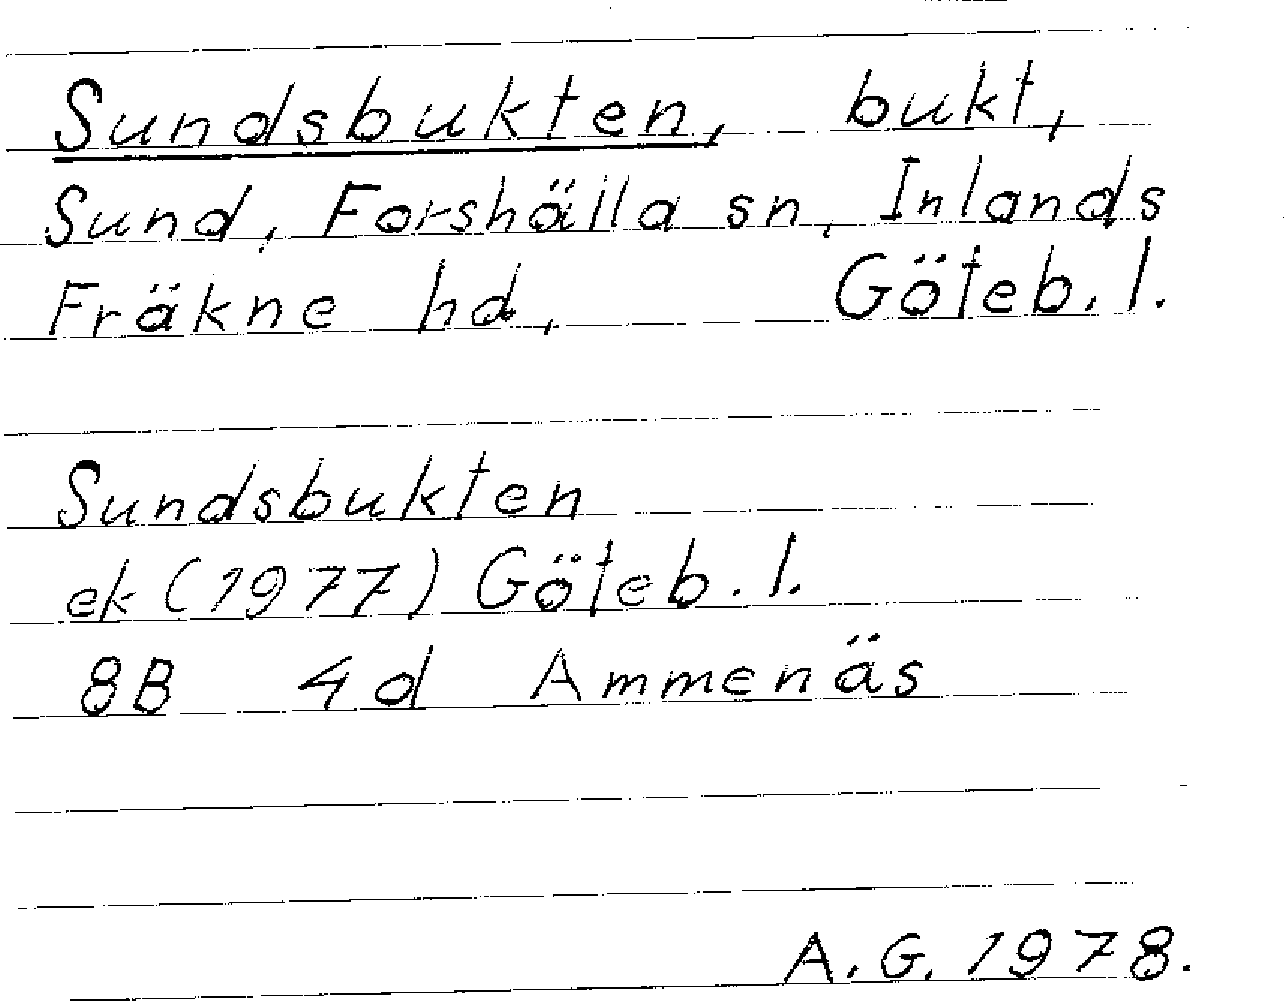 Sundsbukten, bukt,
Sund, Forshälla sn, Inlands
Fräkne hd, Göteb. l.
Sundsbukten
ek (1977) Göteb. l.
8B 4d Ammenäs
A. G. 1978.